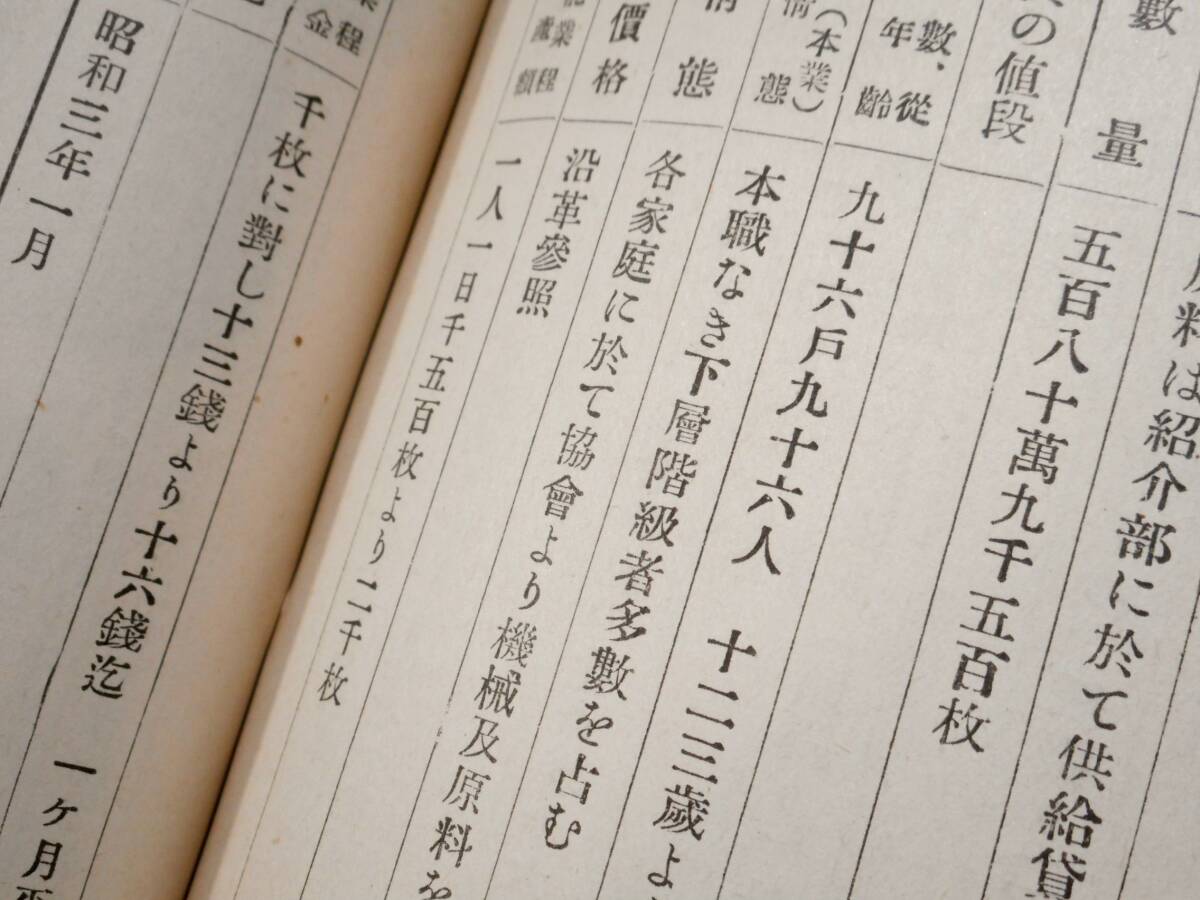 料は紹介部に於て供給貸
數量　五百八十萬九千五百枚
の値段
數、從
年齡　九十六戶九十六人　十二三歲よ
(本業)
態　本職なき下層階級者多數を占む
態　各家庭に於て協會より機械及原料を
價格　沿革參照
業程
額　一人一日千五百枚より二千枚
程
金　千枚に對し十三錢より十六錢迄　一ヶ月
昭和三年一月